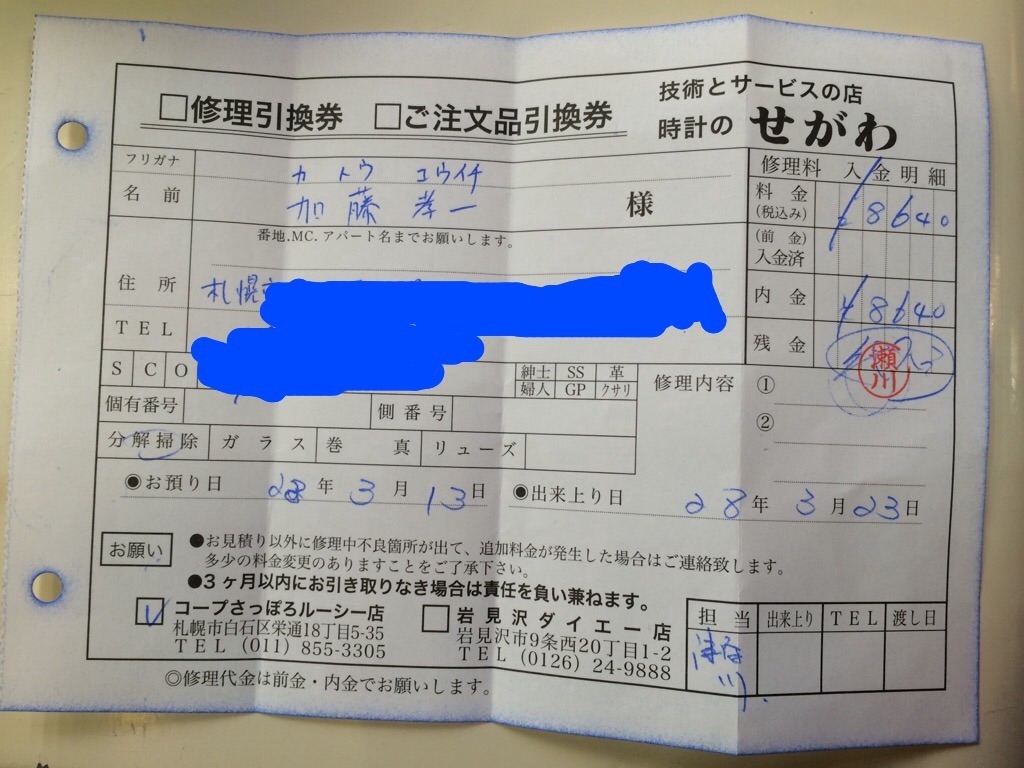 □修理引換券 □ご注文品引換券
技術とサービスの店
時計の せがわ
フリガナ カトウ コウイチ
名前 加藤 孝一 様
番地.MC.アパート名までお願いします。
住所 札幌市
TEL
S C O
紳士 SS 革
婦人 GP クサリ
個有番号 側番号
分解掃除 ガラス 巻真 リューズ
修理料 入金明細
料金 (税込み) ¥8640
(前金) 入金済
内金 ¥8640
残金
瀬川
修理内容 ①
②
◉お預り日 28年3月13日 ◉出来上り日 28年3月23日
お願い
●お見積り以外に修理中不良箇所が出て、追加料金が発生した場合はご連絡致します。
多少の料金変更のありますことをご了承下さい。
●3ヶ月以内にお引き取りなき場合は責任を負い兼ねます。
コープさっぽろルーシー店
札幌市白石区栄通18丁目5-35
TEL (011) 855-3305
岩見沢ダイエー店
岩見沢市9条西20丁目1-2
TEL (0126) 24-9888
担当 出来上り TEL 渡し日
◎修理代金は前金・内金でお願いします。